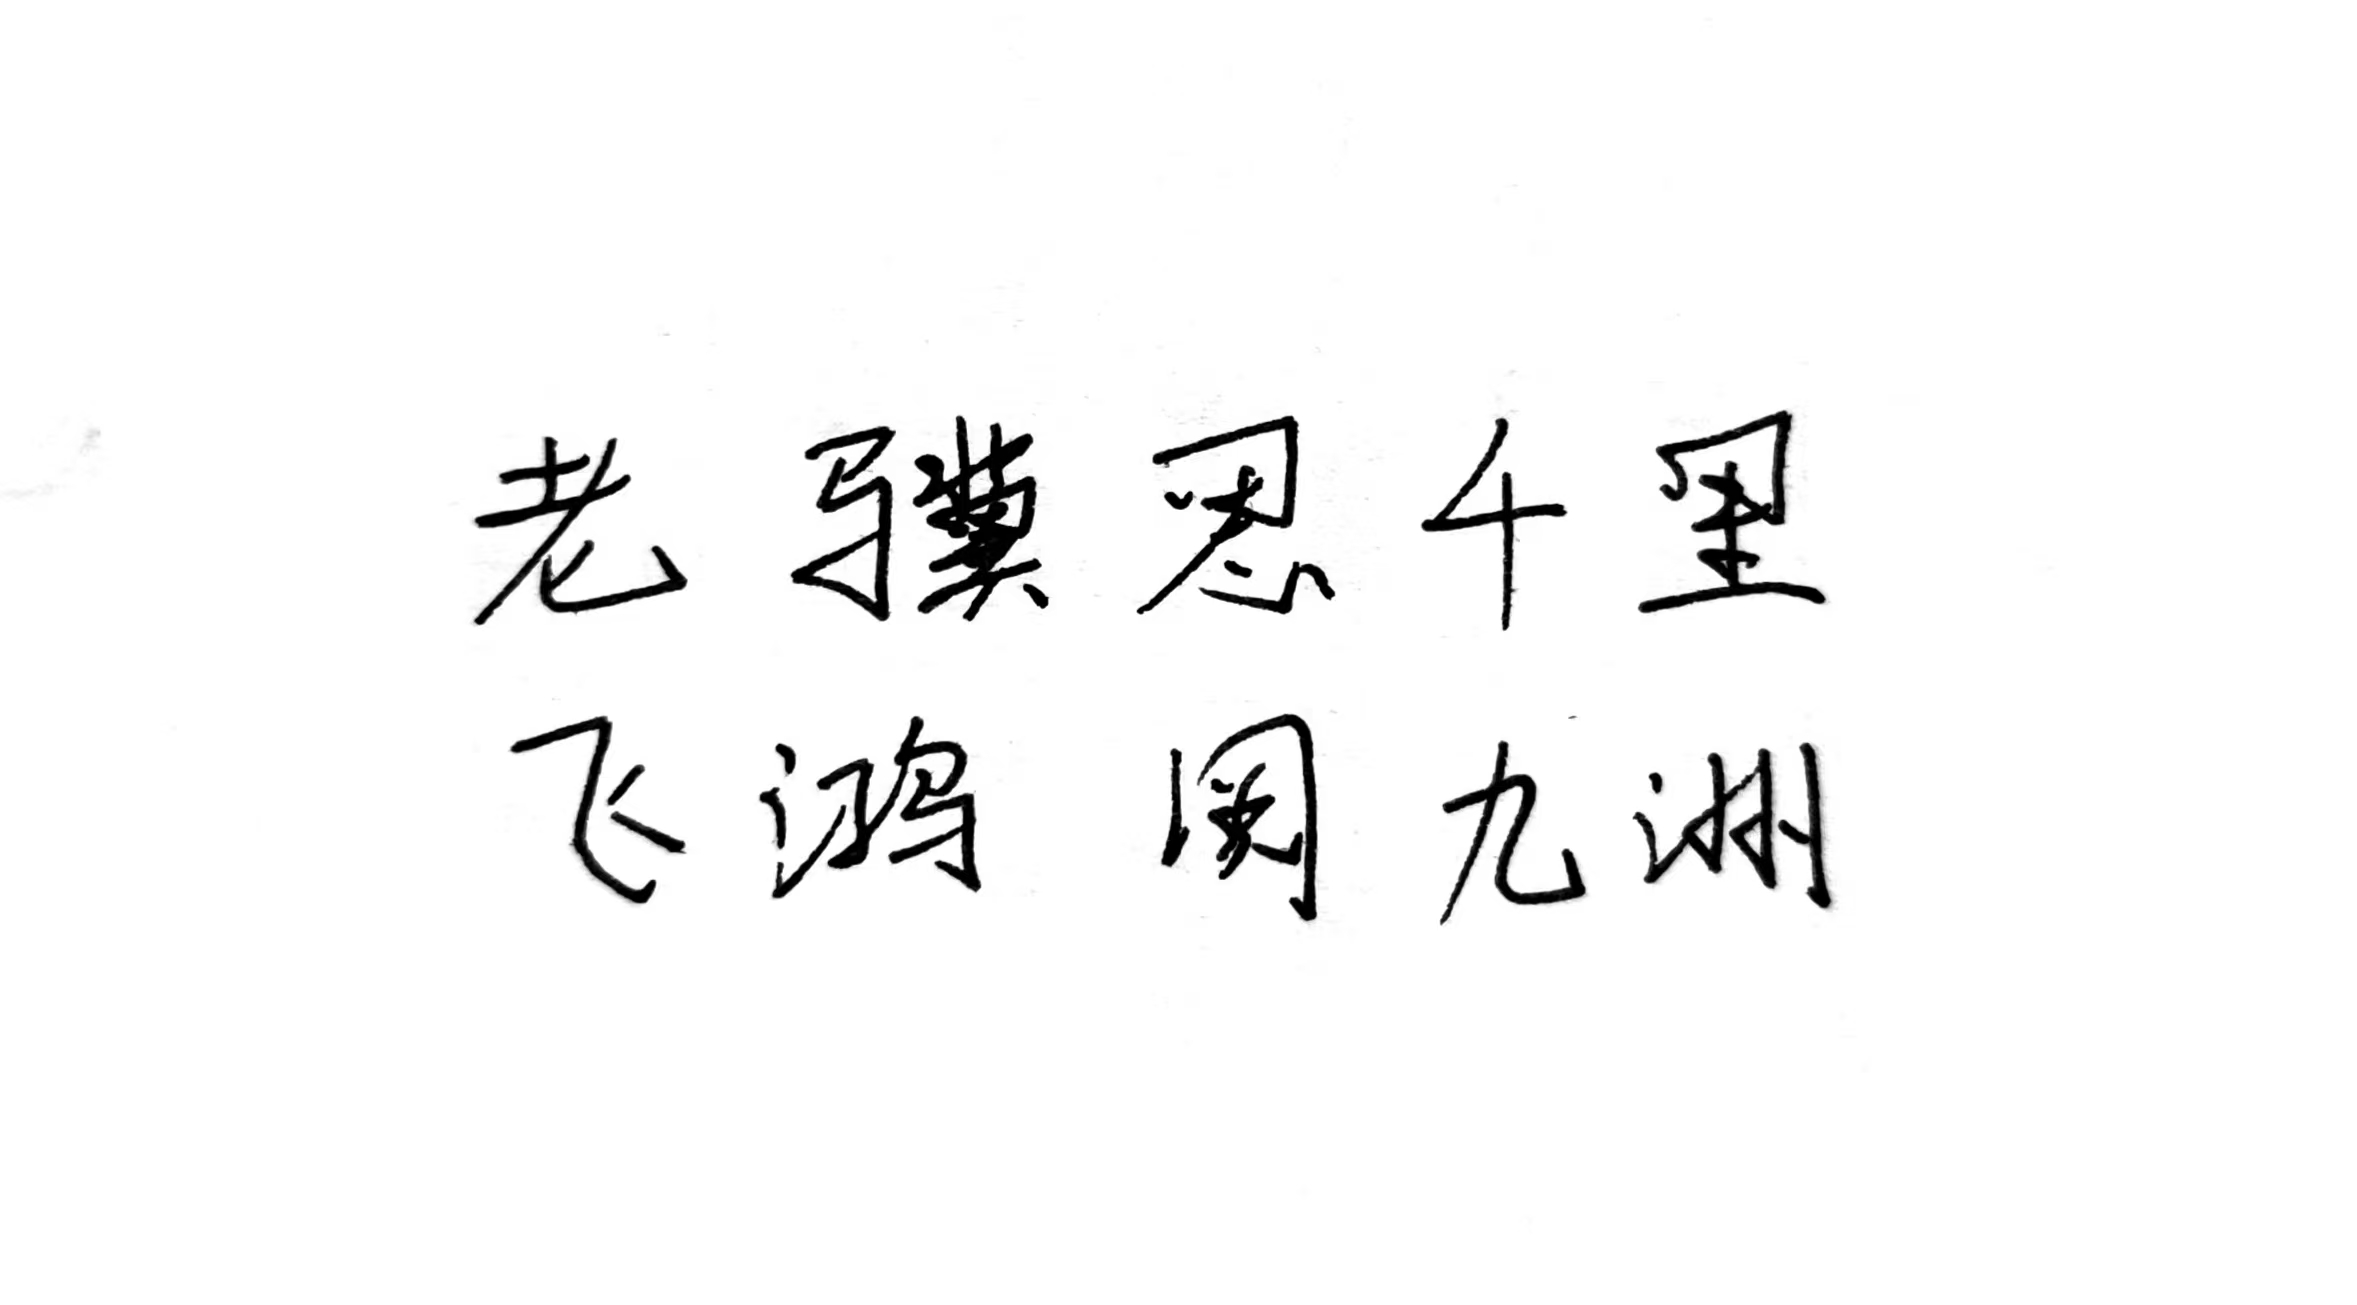 老骥思千里
飞鸿九洲